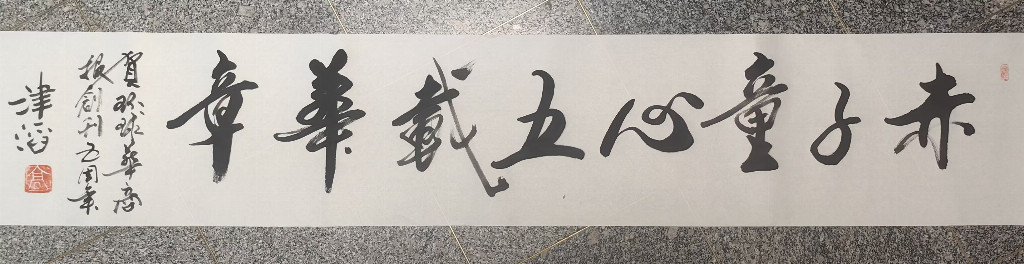 赤子童心五載華章
賀環球華商
报創刊五周年
津滔